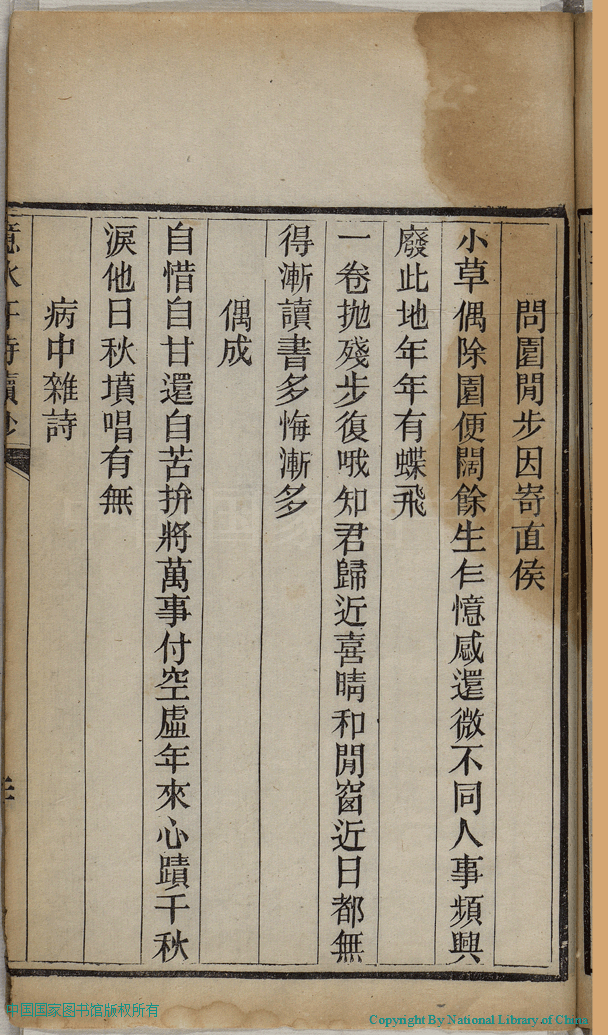 問園閒步因寄直侯
小草偶除園便闊餘生乍憶感還微不同人事頻興
廢此地年年有蝶飛
一卷拋殘步復哦知君歸近喜晴和閒窗近日都無
得漸讀書多悔漸多
偶成
自惜自甘還自苦拚將萬事付空虛年來心蹟千秋
淚他日秋墳唱有無
病中雜詩
中国国家图书馆版权所有
Copyright By National Library of China